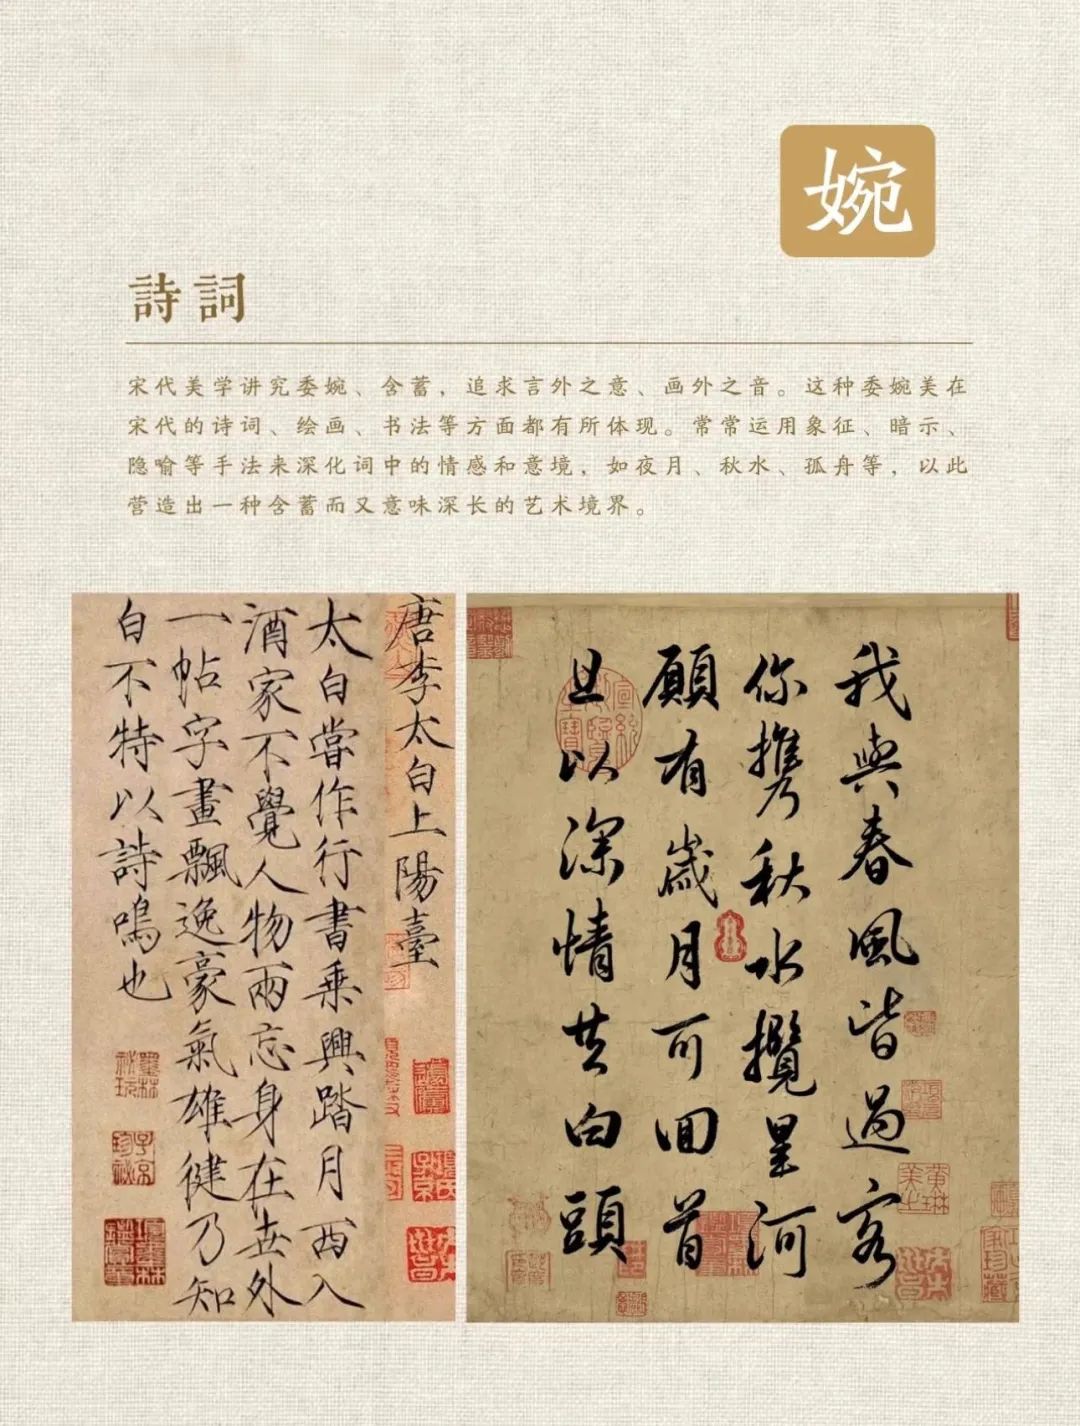 婉
詩詞
宋代美学讲究委婉、含蓄，追求言外之意、画外之音。这种委婉美在
宋代的诗词、绘画、书法等方面都有所体现。常常运用象征、暗示、
隐喻等手法来深化词中的情感和意境，如夜月、秋水、孤舟等，以此
营造出一种含蓄而又意味深长的艺术境界。
唐李太白上陽臺
太白嘗作行書乘興踏月西入
酒家不覺人物兩忘身在世外
一帖字畫飄逸豪氣雄健乃知
白不特以詩鳴也
我與春風皆過客
你携秋水攬星河
願有歲月可回首
且以深情共白頭